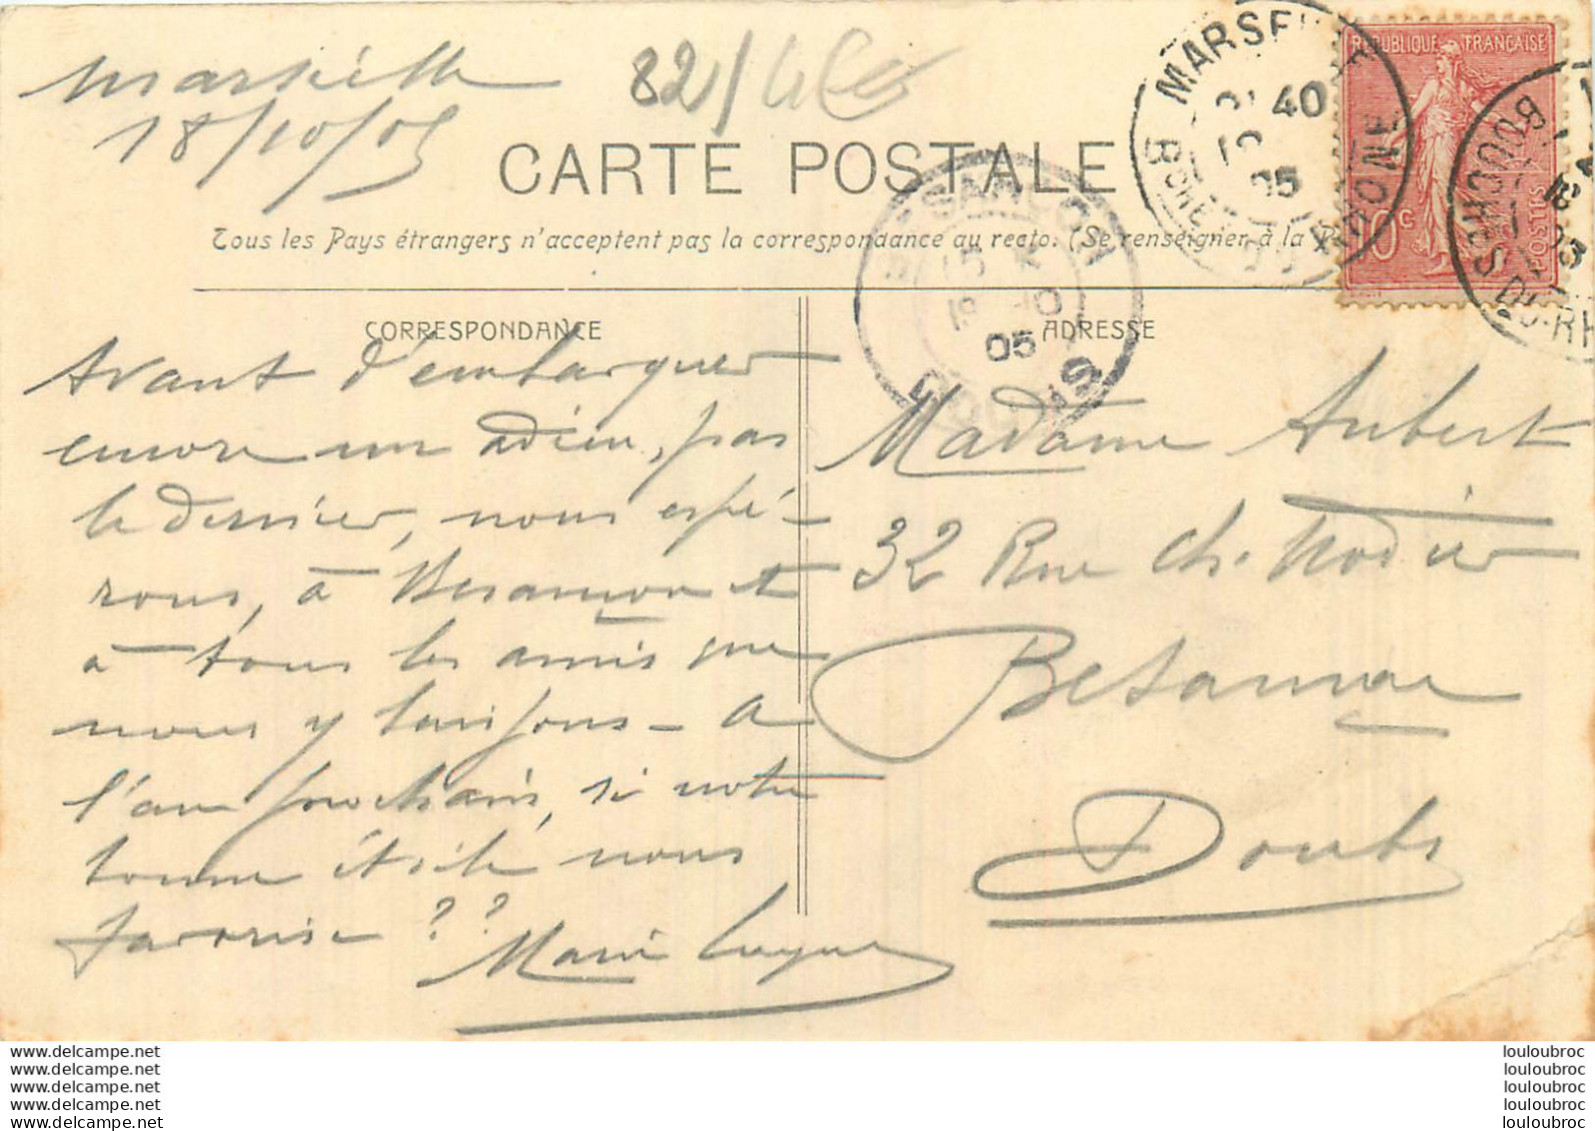 Marseille
18/10/05
82/
CARTE POSTALE
Tous les Pays étrangers n'acceptent pas la correspondance au recto. (Se renseigner à la
CORRESPONDANCE
ADRESSE
Avant d'embarquer
encore un adieu, pas
le dernier, nous espé-
rons, à Besançon et
à tous les amis que
nous y laissons - A
l'an prochain, si notre
bonne étoile nous
favorise ??
Marie
Madame Aubert
32 Rue Ch. Nodier
Besançon
Doubs
REPUBLIQUE FRANÇAISE
10c
POSTES
MARSEILLE
40
05
BOUCHES DU RH
18
BESANCON
19 10
05
DOUBS
www.delcampe.net
www.delcampe.net
www.delcampe.net
www.delcampe.net
www.delcampe.net
louloubroc
louloubroc
louloubroc
louloubroc
louloubroc